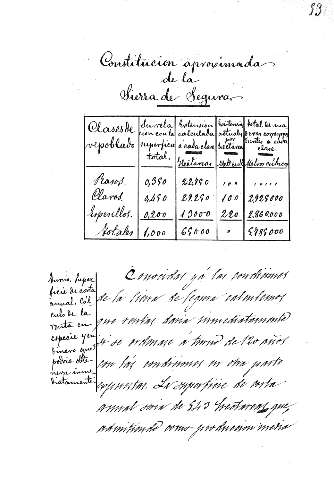 Constitucion aproximada
de la
Sierra de Segura
Clases de
repoblado
Su rela
cion con la
superficie
total.
Extension
calculada
á cada clase
Hectareas
Existencia
actual
por
hectarea
Total de ma
deras correspon
dientes á cada
clase
Metros cúbicos
Rasos 0,350 22.750
Claros 0,450 29.250 100 2,925000
Espesillos 0,200 13000 220 2.860000
Totales 1,000 65000 " 5785000
Turno, Super
ficie de corta
anual. Cál
culo de la
renta en
especie y en
dinero que
podria obte
nerse inme
diatamente.
Conocidas yá las condiciones
de la Sierra de Segura calculemos
que rentas daria inmediatamente
si se ordenase á turno de 120 años
con las condiciones en otra parte
expuestas. La superficie de corta
anual seria de 543 hectareas que,
admitiendo como produccion media